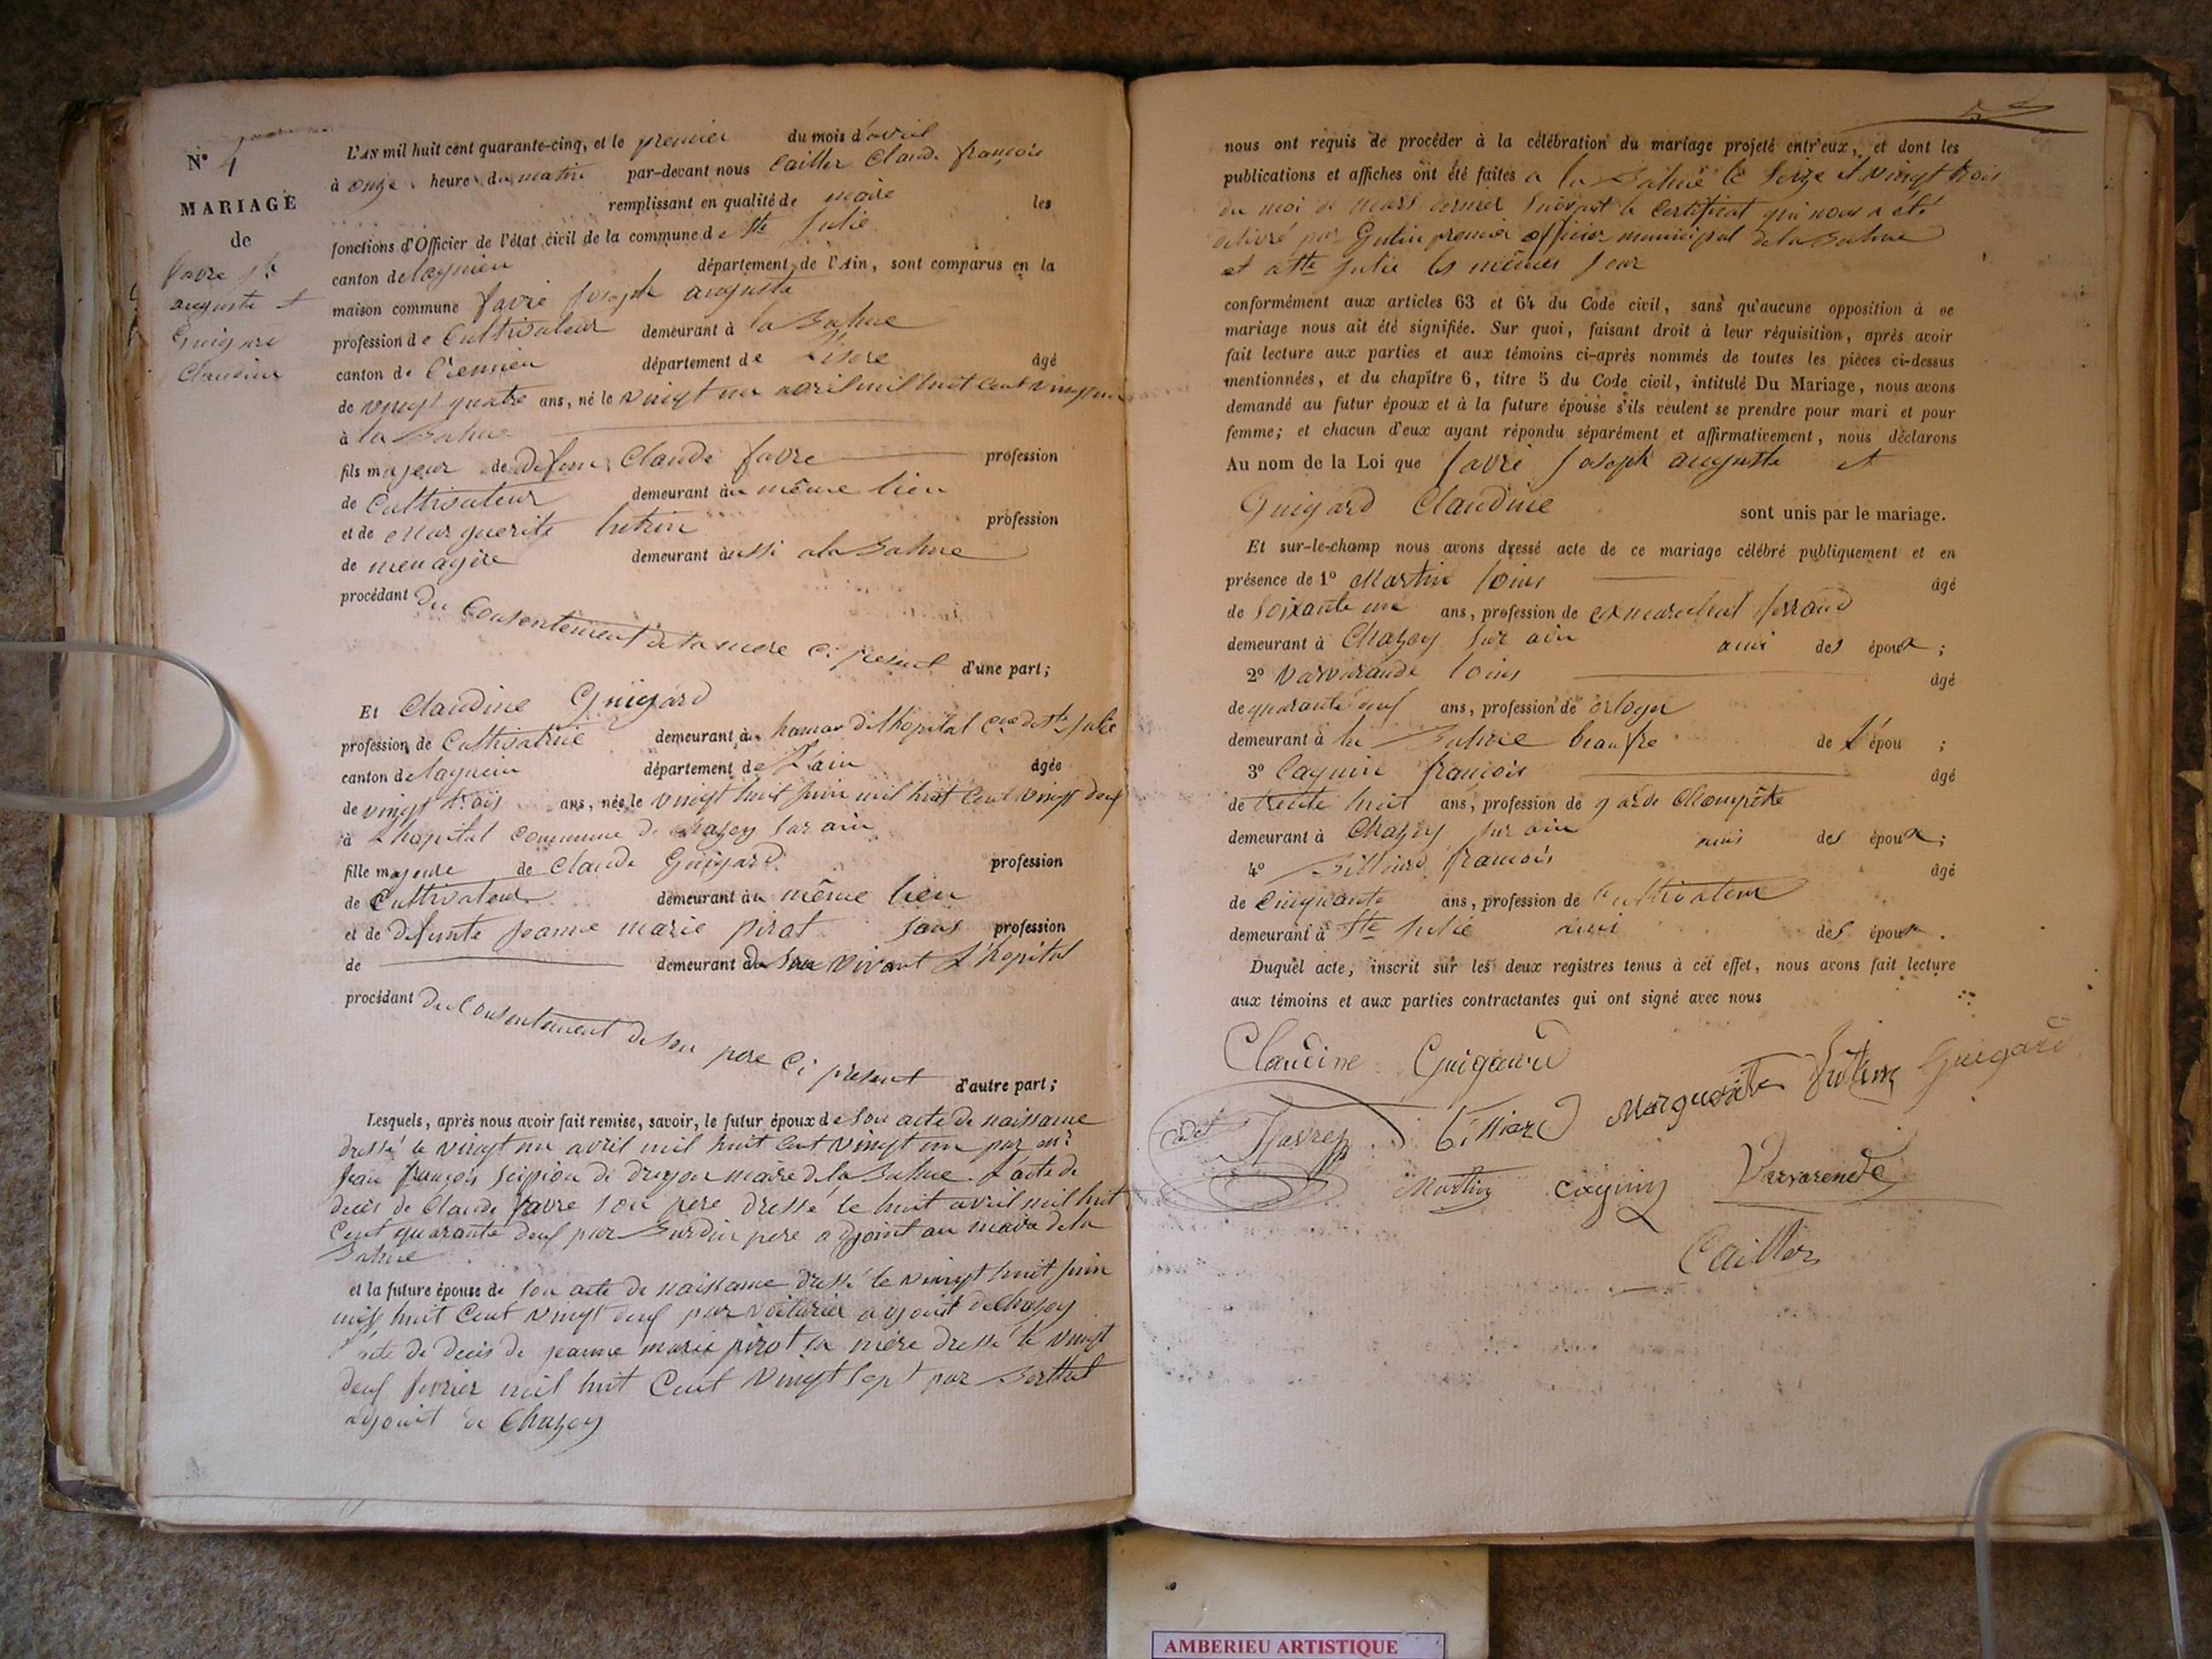 N° 4
MARIAGE
de
favre jh
auguste et
Guigard
Claudine
L'AN mil huit cent quarante-cinq, et le premier du mois d'avril
à onze heures du matin par-devant nous Cailler Claude françois
remplissant en qualité de maire les
fonctions d'Officier de l'état civil de la commune de Ste Julie
canton de lagnieu département de l'Ain, sont comparus en la
maison commune favre Joseph auguste
profession de Cultivateur demeurant à la Balme
canton de Crémieu département de Lisere âgé
de vingt quatre ans, né le vingt un avril mil huit cent vingt un
à la Balme
fils majeur de defunt Claude favre profession
de Cultivateur demeurant au même lieu
et de Marguerite hutin profession
de menagère demeurant aussi a la Balme
procédant du Consentement de sa mere ci present d'une part;
Et Claudine Guigard
profession de Cultivatrice demeurant à hamau de lhopital Cne de Ste Julie
canton de lagnieu département de L'ain âgée
de vingt trois ans, née le vingt huit juin mil huit cent vingt deux
à Lhopital commune de Chazey sur ain
fille majeure de Claude Guigard profession
de Cultivateur demeurant au même lieu
et de defunte Jeanne marie pirat sans profession
de demeurant de son vivant L'hopital
procédant du Consentement de son pere ci present d'autre part;
Lesquels, après nous avoir fait remise, savoir, le futur époux de son acte de naissance
dressé le vingt un avril mil huit cent vingt un par
Jean françois Scipion de dreyon maire de la Balme L'acte de
decès de Claude favre son pere dressé le huit avril mil huit
cent quarante deux par Burdin pere adjoint au maire de la
Balme
et la future épouse de son acte de naissance dressé le vingt huit juin
mil huit cent vingt deux par voiturier adjoint de Chazey
l'acte de decès de jeanne marie pirat sa mère dressé le vingt
deux fevrier mil huit cent vingt sept par Berthet
adjoint de Chazey
nous ont requis de procéder à la célébration du mariage projeté entr'eux, et dont les
publications et affiches ont été faites a la Balme le seize et vingt trois
du moi de mars dernier suivant le certificat qui nous a été
delivré par Gutin premier officier municipal de la Balme
et a Ste Julie les mêmes jour
conformément aux articles 63 et 64 du Code civil, sans qu'aucune opposition à ce
mariage nous ait été signifiée. Sur quoi, faisant droit à leur réquisition, après avoir
fait lecture aux parties et aux témoins ci-après nommés de toutes les pièces ci-dessus
mentionnées, et du chapitre 6, titre 5 du Code civil, intitulé Du Mariage, nous avons
demandé au futur époux et à la future épouse s'ils veulent se prendre pour mari et pour
femme; et chacun d'eux ayant répondu séparément et affirmativement, nous déclarons
Au nom de la Loi que favre Joseph auguste et
Guigard Claudine sont unis par le mariage.
Et sur-le-champ nous avons dressé acte de ce mariage célébré publiquement et en
présence de 1° Martin loius âgé
de soixante un ans, profession de ex marechal ferrand
demeurant à Chazey sur ain ami des époux;
2° Varvarande loius âgé
de quarante neuf ans, profession de orloger
demeurant à la Balme beaufre de L'épou;
3° Cagnin françois âgé
de trente huit ans, profession de garde Champêtre
demeurant à Chazey sur ain ami des époux;
4° Billiard françois âgé
de Cinquante ans, profession de Cultivateur
demeurant à Ste Julie ami des époux.
Duquel acte, inscrit sur les deux registres tenus à cet effet, nous avons fait lecture
aux témoins et aux parties contractantes qui ont signé avec nous
Claudine Guigard
Marguerite hutin Guigard
cadet Favre Billiard
Martin Cagnin Varvarende
Cailler
AMBERIEU ARTISTIQUE